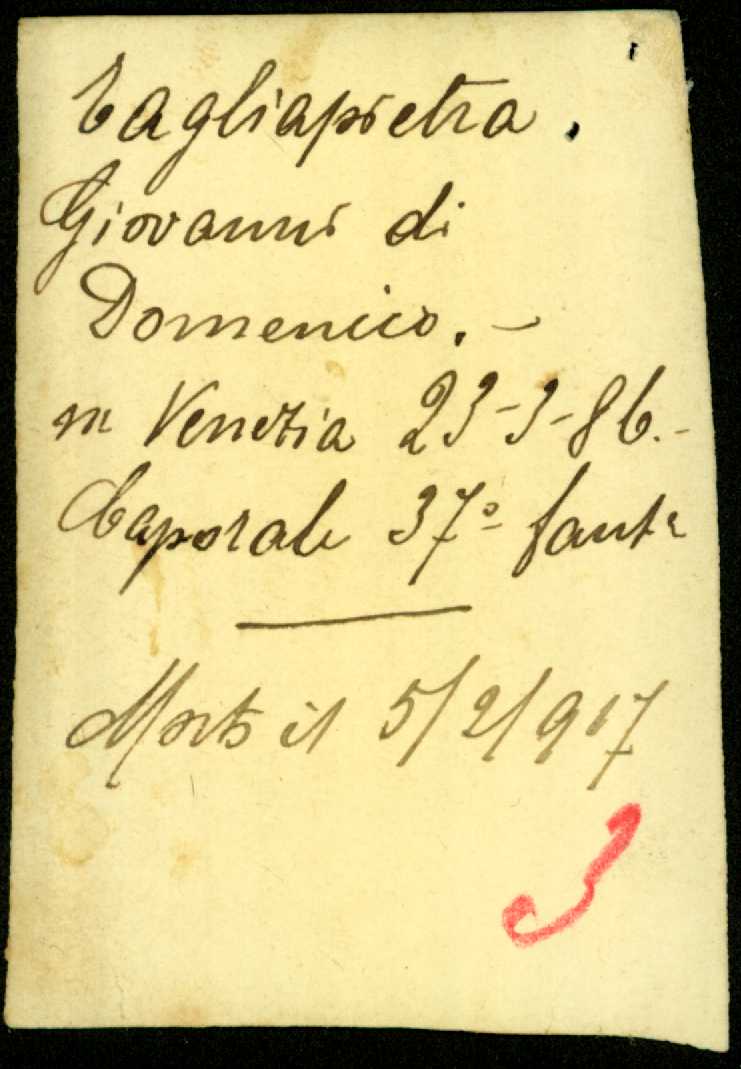 Tagliapietra.
Giovanni di
Domenico. -
n Venezia 23-3-86.-
Caporale 37º fantª
Morto il 5/2/917
3